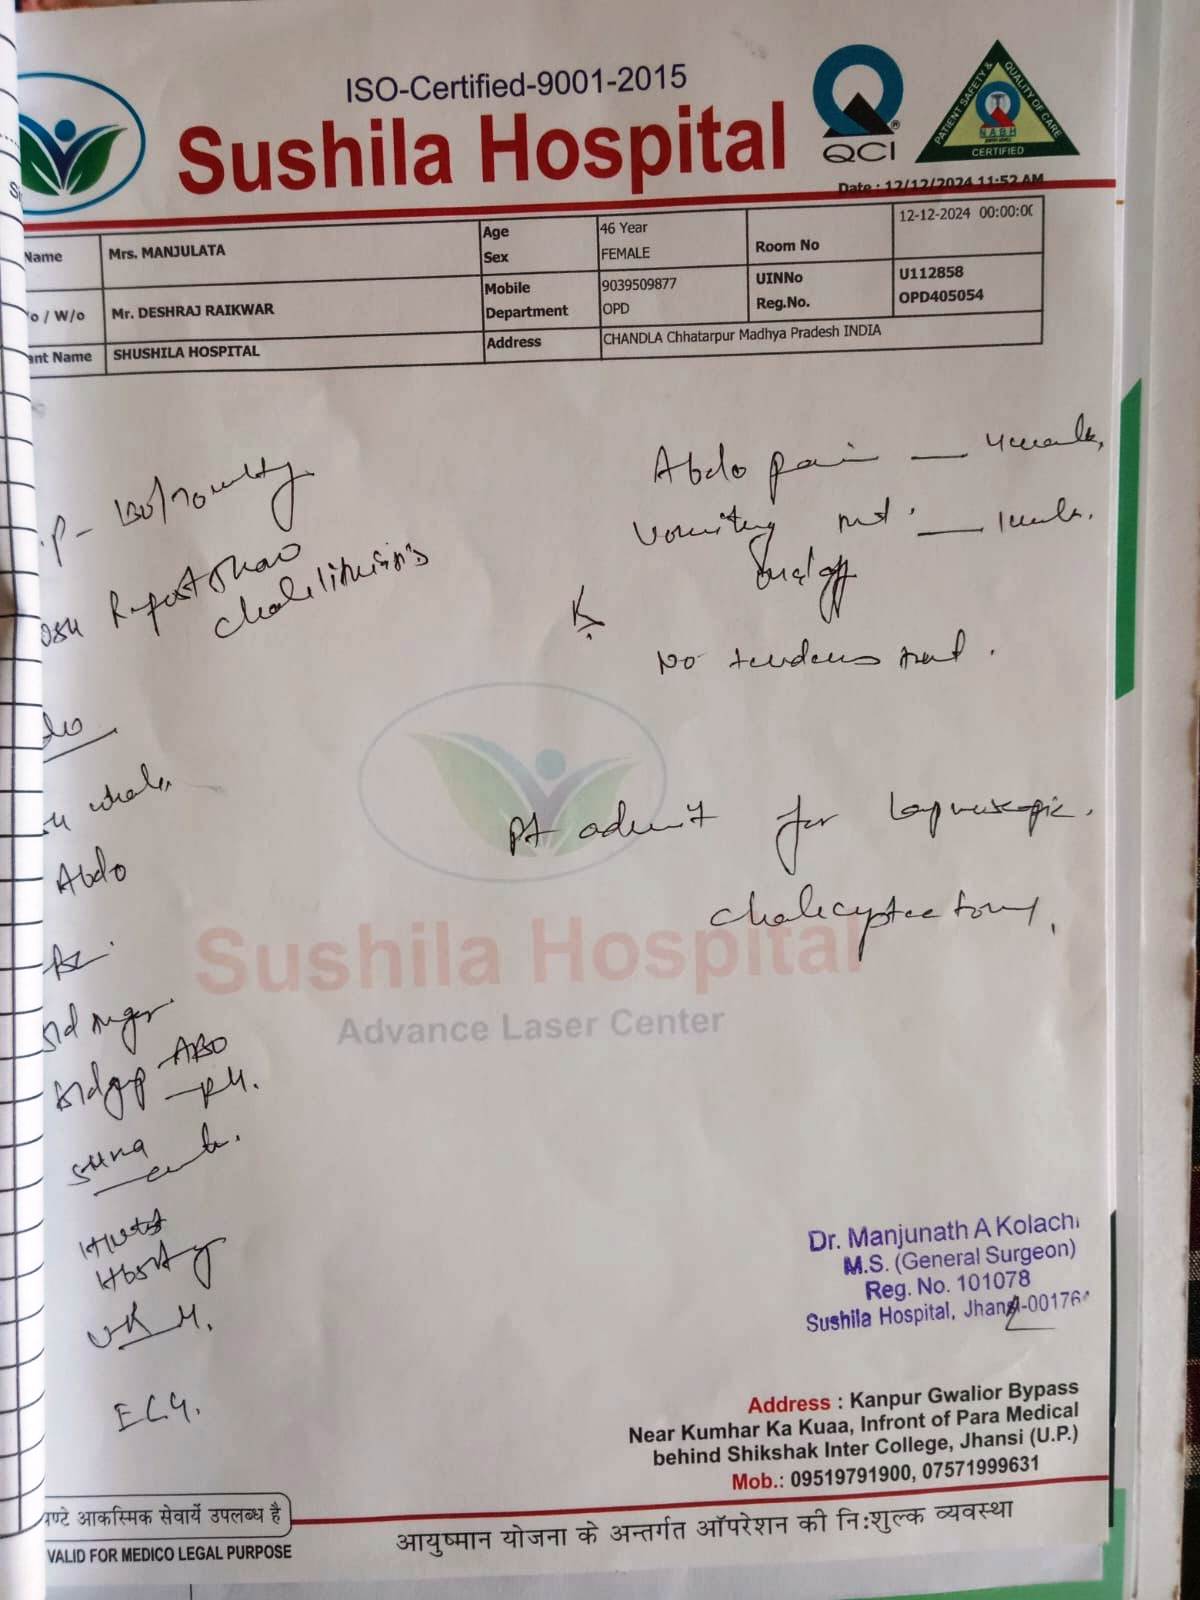 ISO-Certified-9001-2015
Sushila Hospital
QCI
PATIENT SAFETY & QUALITY OF CARE
NABH
CERTIFIED
Date : 12/12/2024 11:52 AM
Name Mrs. MANJULATA Age 46 Year Room No 12-12-2024 00:00:00
Sex FEMALE
o / W/o Mr. DESHRAJ RAIKWAR Mobile 9039509877 UINNo U112858
Department OPD Reg.No. OPD405054
ant Name SHUSHILA HOSPITAL Address CHANDLA Chhatarpur Madhya Pradesh INDIA
Abdo pain — 4 weeks,
.P - 130/70 mmHg
Vomiting — 1 week.
Report Show
Cholelithiasis
No tenderness
whole
Abdo
Pt admit for Laparoscopic.
Cholecystectomy,
Sushila Hospital
Advance Laser Center
sugar
ABO
RH.
HBsAg
ECG.
Dr. Manjunath A Kolachi
M.S. (General Surgeon)
Reg. No. 101078
Sushila Hospital, Jhansi-00176
Address : Kanpur Gwalior Bypass
Near Kumhar Ka Kuaa, Infront of Para Medical
behind Shikshak Inter College, Jhansi (U.P.)
Mob.: 09519791900, 07571999631
घण्टे आकस्मिक सेवायें उपलब्ध है
आयुष्मान योजना के अन्तर्गत ऑपरेशन की नि:शुल्क व्यवस्था
VALID FOR MEDICO LEGAL PURPOSE